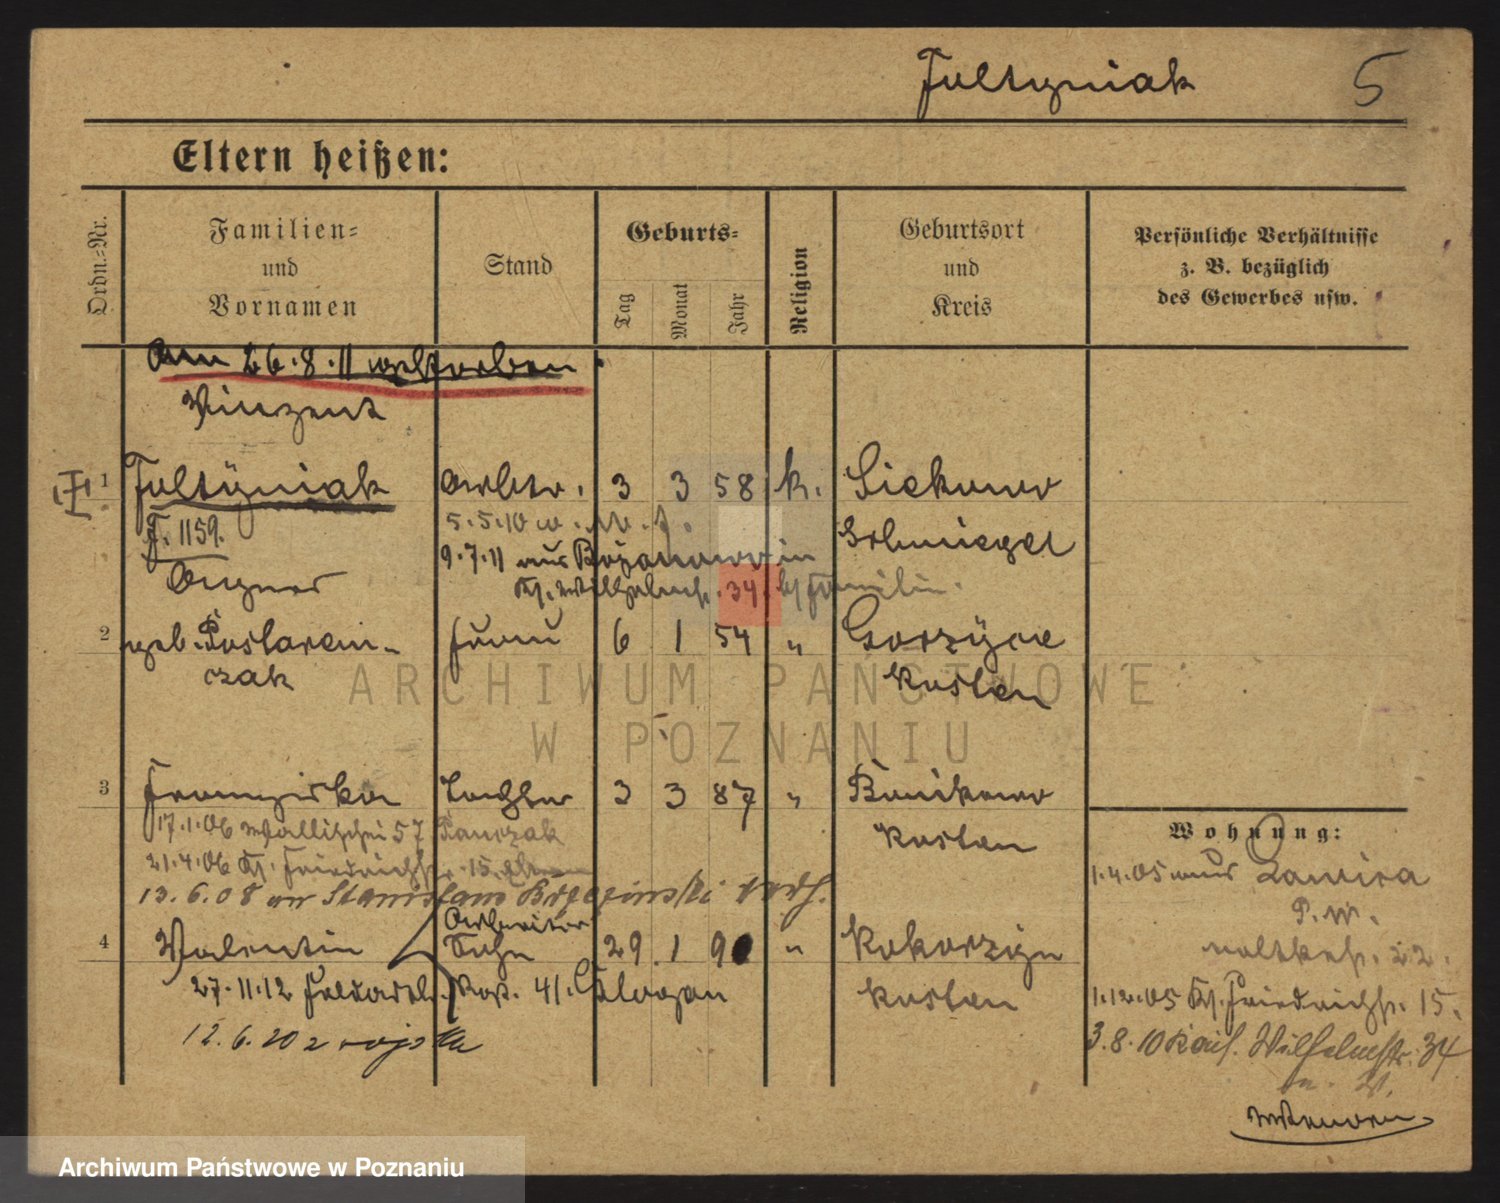 Fultyniak 5
Eltern heißen:
Ordn.-Nr.
Familien-
und
Vornamen
Stand
Geburts-
Tag
Monat
Jahr
Religion
Geburtsort
und
Kreis
Persönliche Verhältnisse
z. B. bezüglich
des Gewerbes usw.
Am 26.8.11 verstorben
Vinzent
1 Fultyniak Arbtr. 3 3 58 k. Siekowo
F. 1159. 5.5.10
Schmiegel
9.7.11 aus Bojanowo in
34.
2 geb. 6 1 54 " Gorzyce
czak Kosten
3 Franziska Tochter 3 3 87 " Bonikowo
17.1.06 Wallischei 57 Kosten
21.4.06 Kl. Friedrichstr. 15.
13.6.08 an Stanislaus Brzezinski verh.
Arbeiter
4 Valentin Sohn 29 1 90 " Kokorzyn
27.11.12 41. Glogau Kosten
12.6.20 z wojska
Wohnung:
1.4.05 aus
P. W.
22.
1.12.05 Kl. Friedrichstr. 15.
3.8.10 Kais. Wilhelmstr. 34
ARCHIWUM PAŃSTWOWE
W POZNANIU
Archiwum Państwowe w Poznaniu